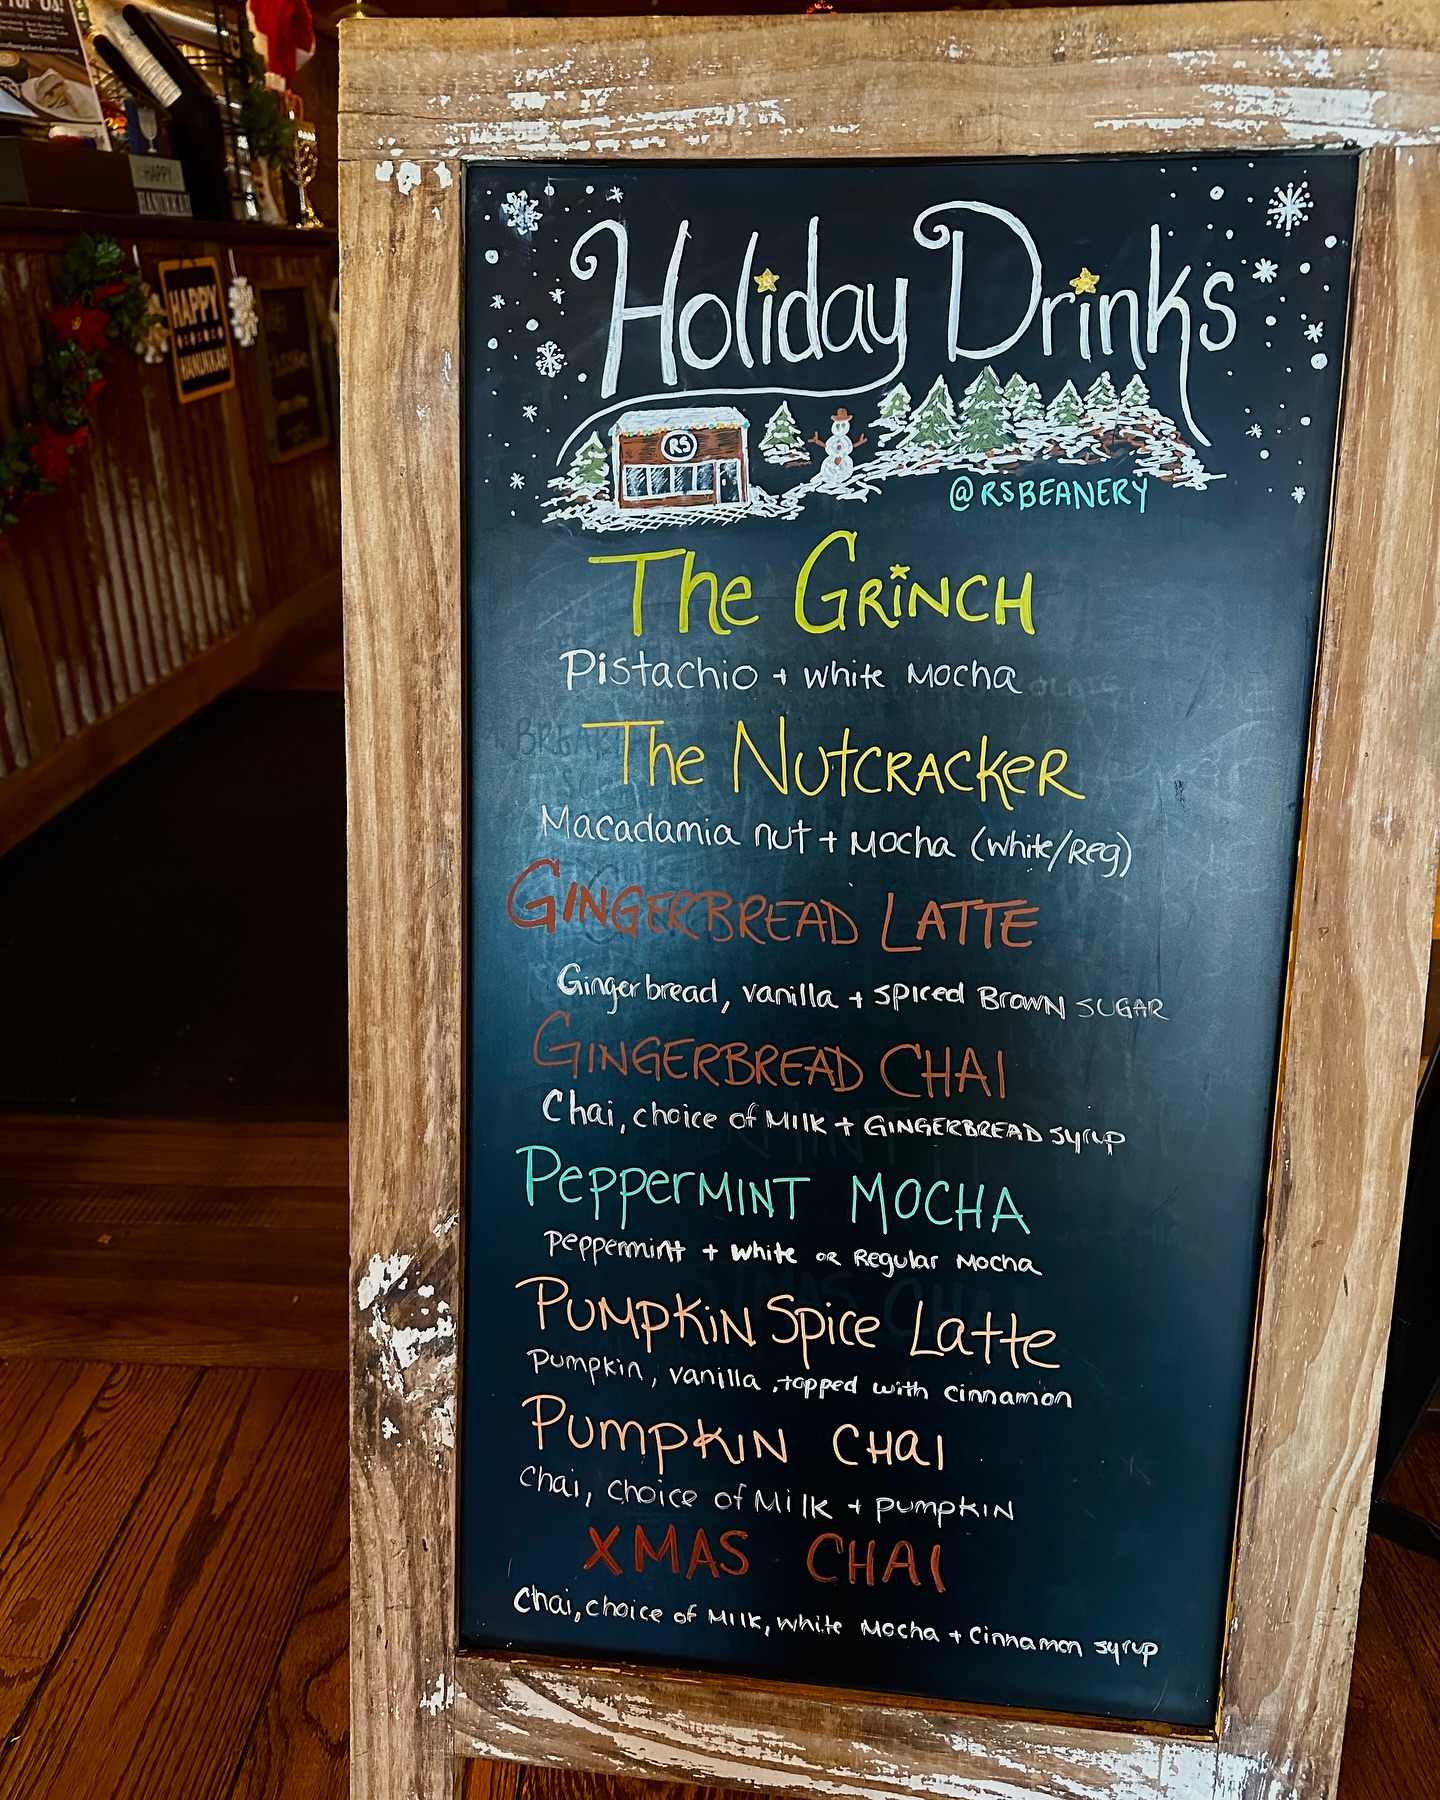 HAPPY
HANUKKAH
HAPPY
HANUKKAH
Holiday Drinks
RS
@RSBEANERY
The GRiNCH
Pistachio + white Mocha
The NutCRACKeR
Macadamia nut + Mocha (white/Reg)
GINGERBREAD LATTE
Gingerbread, vanilla + spiced Brown SUGAR
GINGERBREAD CHAI
Chai, choice of Milk + GINGERBREAD syrup
PePPerMINT MOCHA
Peppermint + white or Regular Mocha
PUMPKiN Spice Latte
Pumpkin, vanilla, topped with cinnamon
PumpkIN CHaI
Chai, choice of Milk + pumpkin
XMAS CHAI
Chai, choice of Milk, white Mocha + Cinnamon syrup